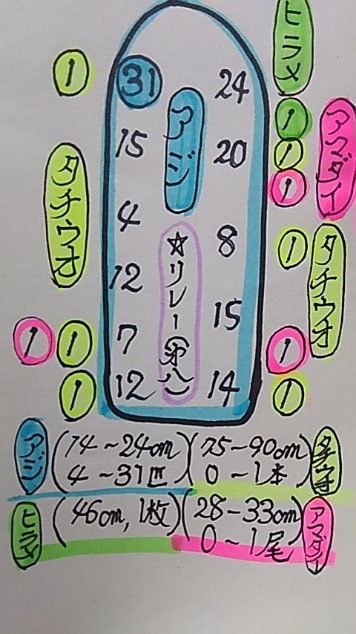 ヒラメ
1
31
24
アジ
1
アマダイ
15
20
1
1
タチウオ
4
8
1
タチウオ
☆リレー(第八)
12
15
1
1
7
1
1
12
14
1
アジ (14~24cm) (75-90cm) タチウオ
4~31匹 0~1本
ヒラメ (46cm, 1枚) (28-33cm) アマダイ
0~1尾